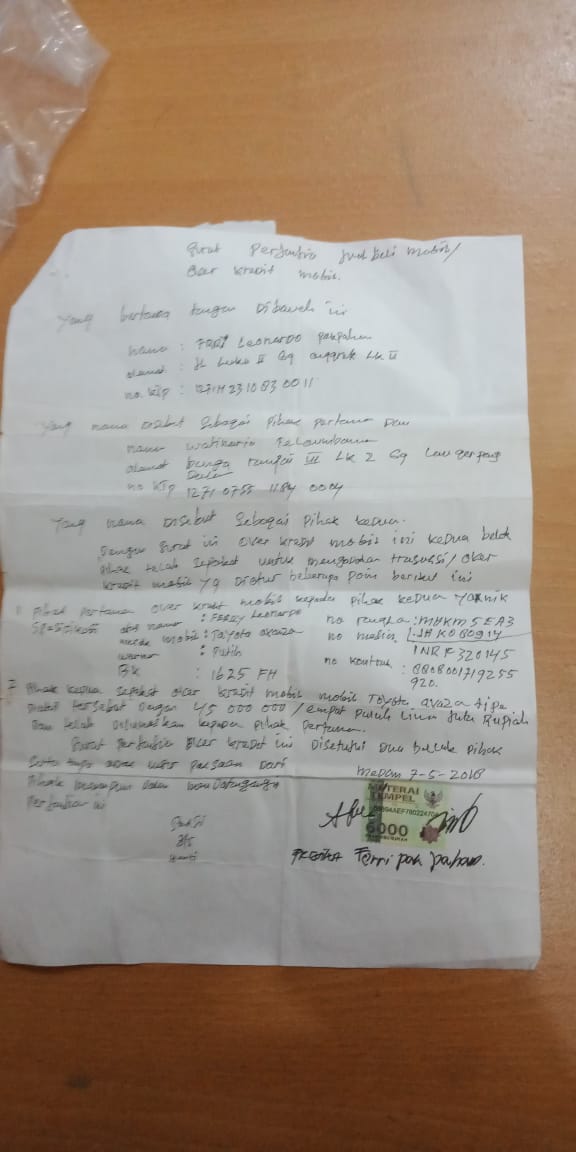 Surat Perjanjia Jual beli mobil/
over kredit mobil.
Yang bertanda tangan Dibawah ini
nama : FERRY Leonardo paspahan
alamat : JL Luku II Gg anggrek LK II
no KTP : 1271123108300 11
Yang nama Disebut Sebagai Pihak Pertama Dan
nama
alamat bunga rampai III LK 2 Gg
no KTP 1271 0755 1184 0004
Yang nama Disebut Sebagai Pihak kedua.
Dengan Surat ini over kredit mobil ini kedua belah
Pihak telah Sepakat untuk mengadakan trasaksi/over
kredit mobil yg Diatur beberapa Poin berikut ini
1 Pihak Pertama over kredit mobil kepada Pihak kedua yaknik
Spesifikasi ats nama : FERRY Leonardo no rangka : MHKM5EA3
merk mobil : Tayota avaza no mesin : JHK080914
warna : Putih 1NRF320145
BK : 1625 FH no kontrak : 0808001719255
920.
2 Pihak kedua Sepakat over kredit mobil mobil Toyota avaza tipe
mobil tersebut Dengan 45 000 000 / empat puluh Lima Juta Rupiah
Dan telah Dilunaskan kepada Pihak Pertama.
Surat Perjanjia over kredit ini Disetujui Dua belah Pihak
Serta tanpa ada unsur paksaan Dari Medan 7-5-2018
Pihak
Perjanjian ini
METERAI
TEMPEL
6000
Saksi
Ferri